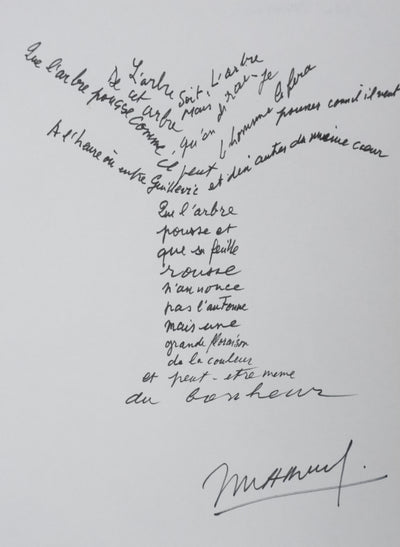 L'arbre soit ! L'arbre
De cet arbre Mais dirai-je
Que l'arbre pousse comme
qu'on ce peut l'homme le fera
pousser comme il veut
A l'heure où entre Guillevic et dix autres du même cœur
Que l'arbre
pousse et
que sa feuille
rousse
n'annonce
pas l'automne
mais une
grande floraison
de la couleur
et peut-etre meme
du bonheur